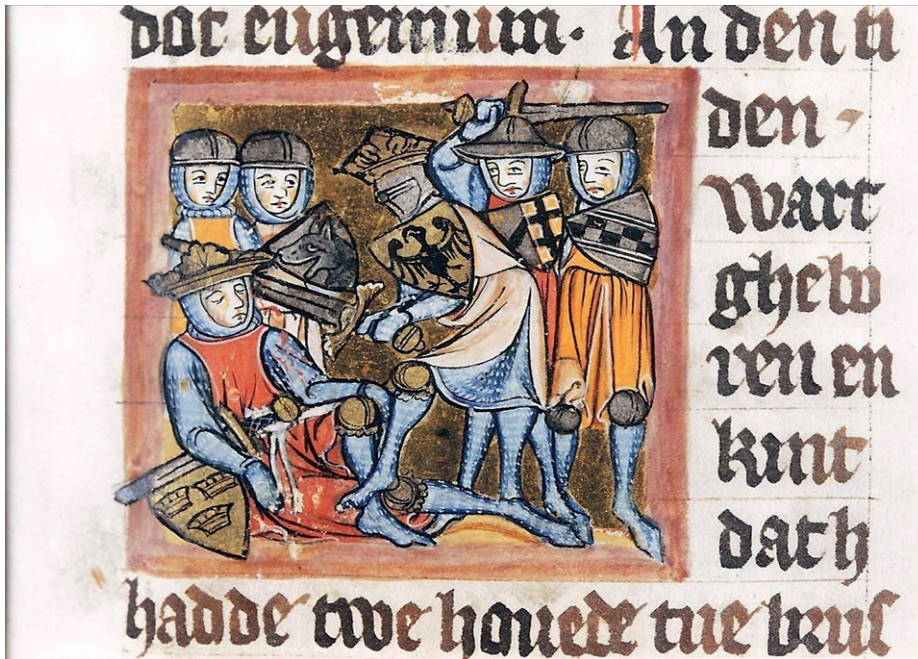 dot eugenium. An den ti
den.
wart
ghebo
ren en
kint
dath
hadde twe houede twe brus